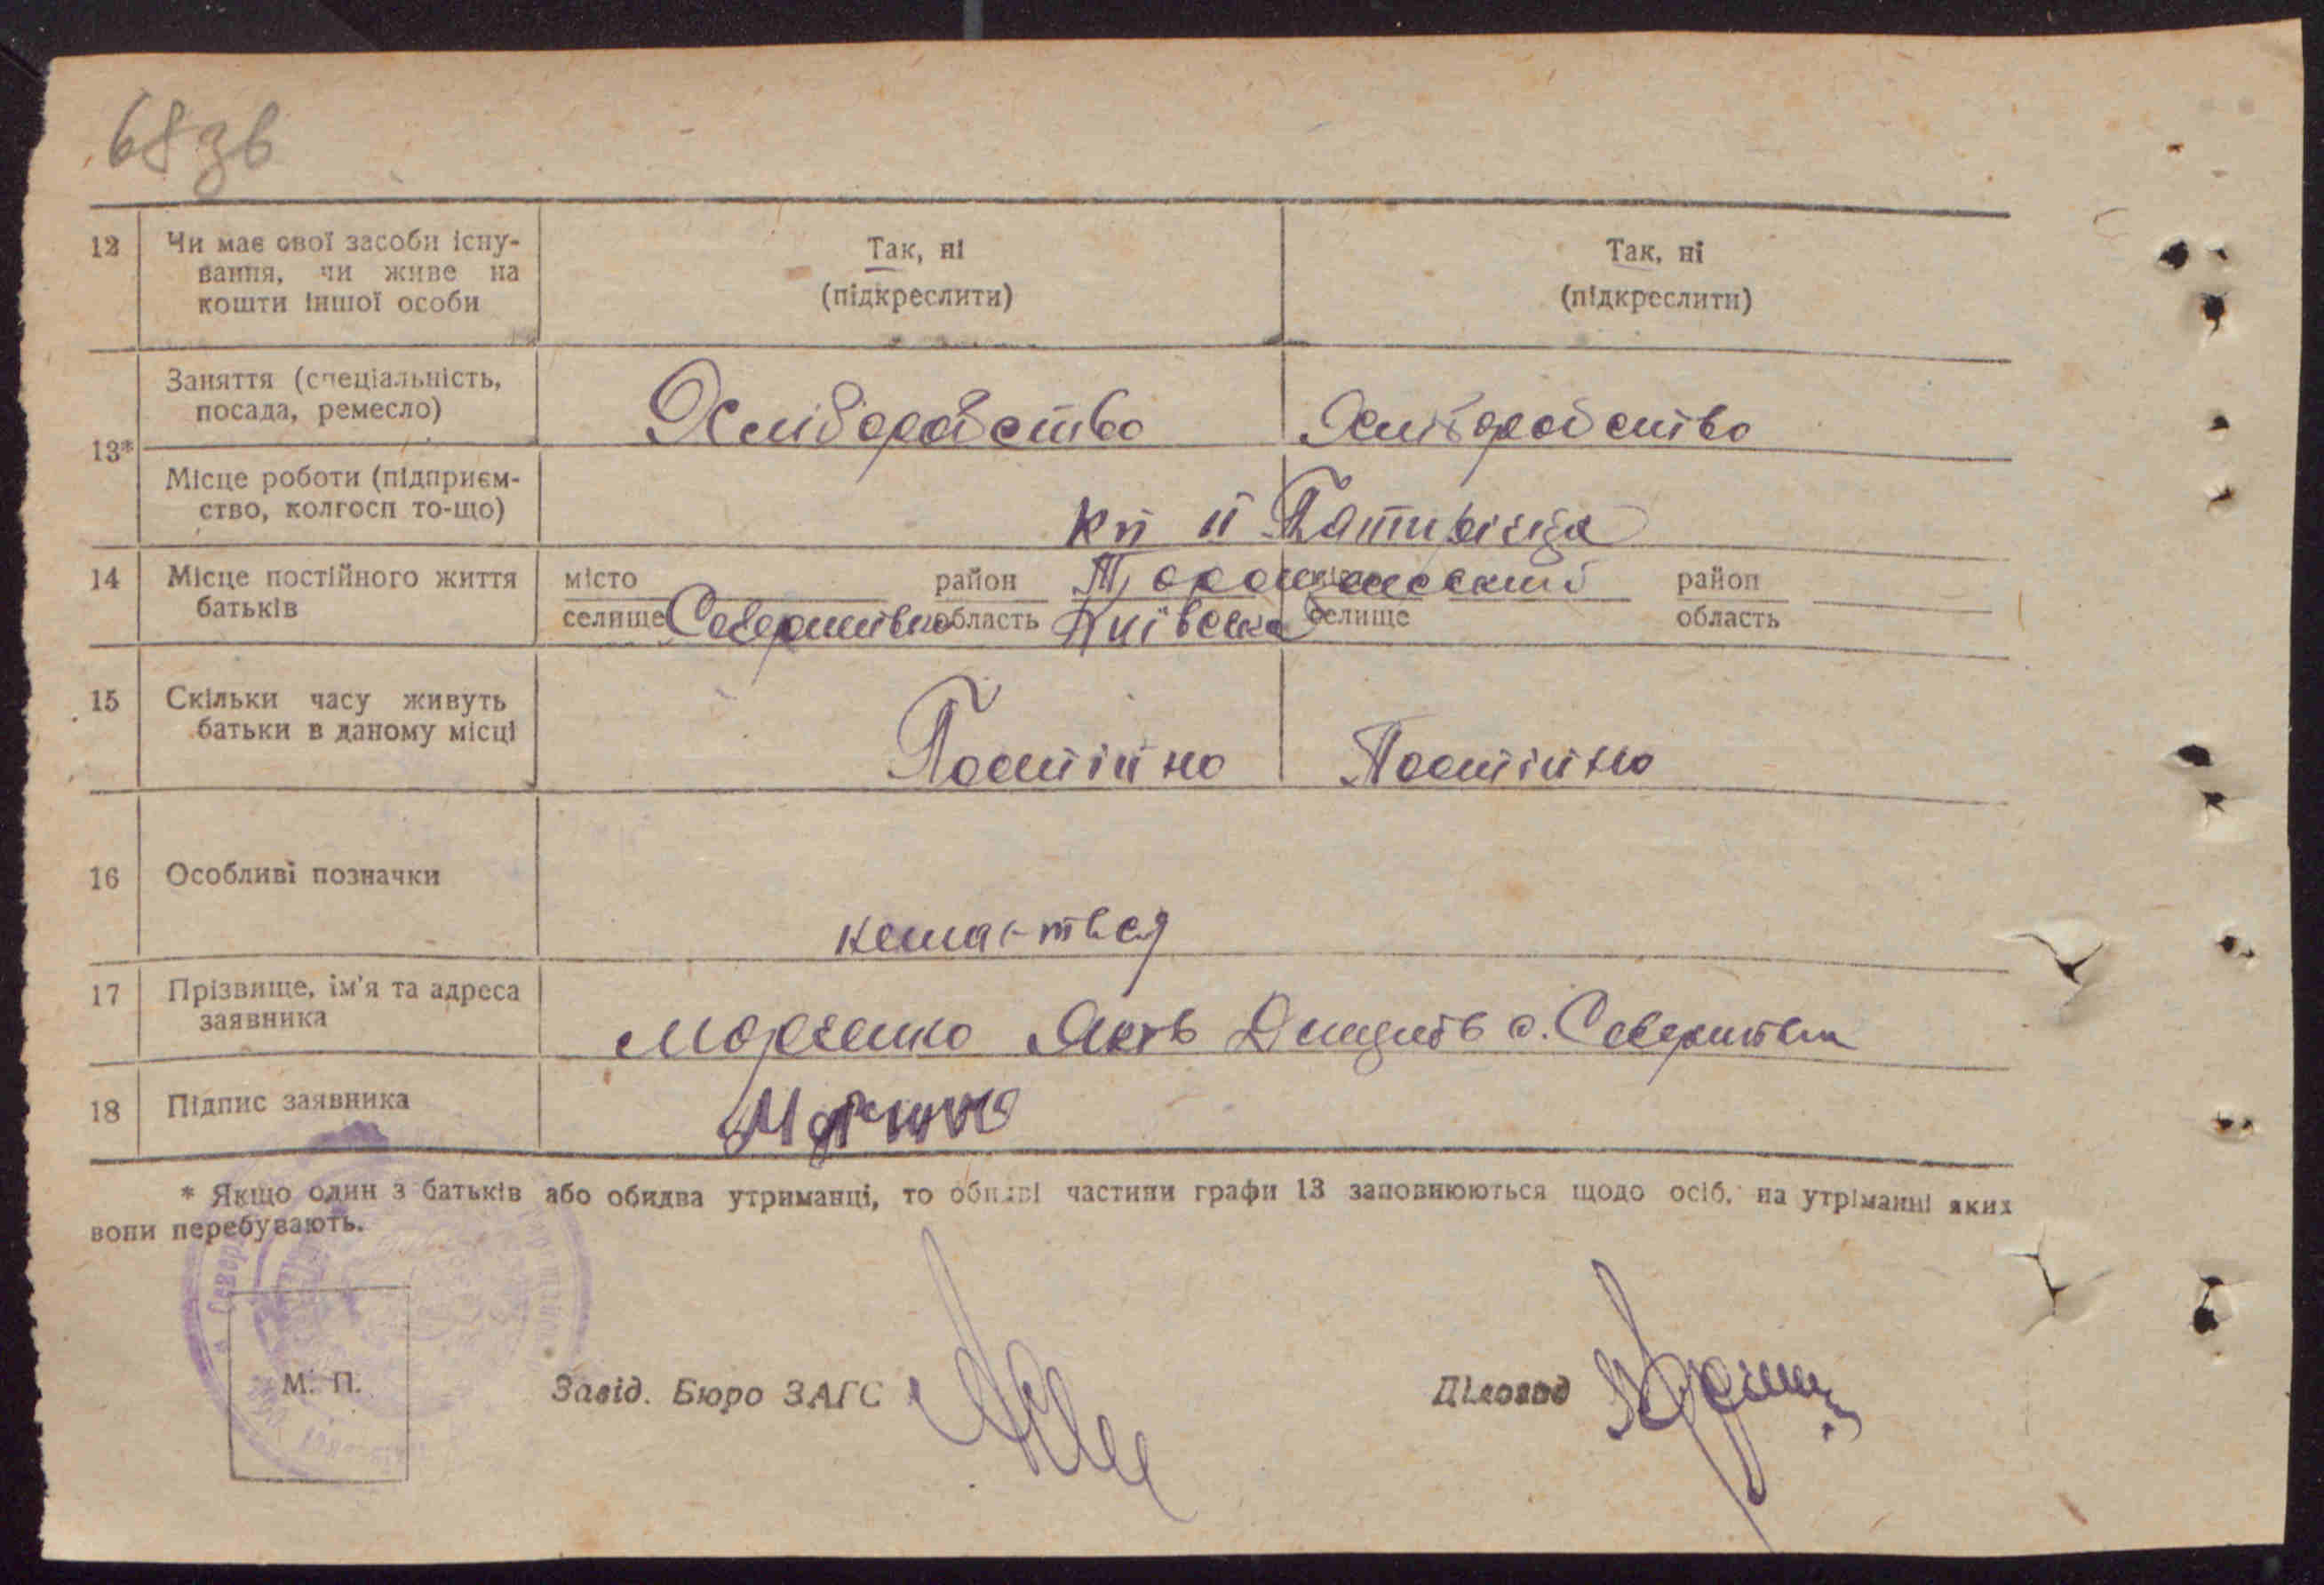 68 зв
12 Чи має свої засоби існу-
вання, чи живе на
кошти іншої особи
Так, ні
(підкреслити)
Так, ні
(підкреслити)
13*
Заняття (спеціальність,
посада, ремесло)
Хліборобство
Хліборобство
Місце роботи (підприєм-
ство, колгосп то-що)
14 Місце постійного життя
батьків
місто район район
селище Северинівка область Київська селище область
15 Скільки часу живуть
батьки в даному місці
Постійно Постійно
16 Особливі позначки
17 Прізвище, ім'я та адреса
заявника
Марченко Яків с. Северинівка
18 Підпис заявника
* Якщо один з батьків або обидва утриманці, то обидві частини графи 13 заповнюються щодо осіб, на утріманні яких
вони перебувають.
М. П.
Завід. Бюро ЗАГС
Діловод